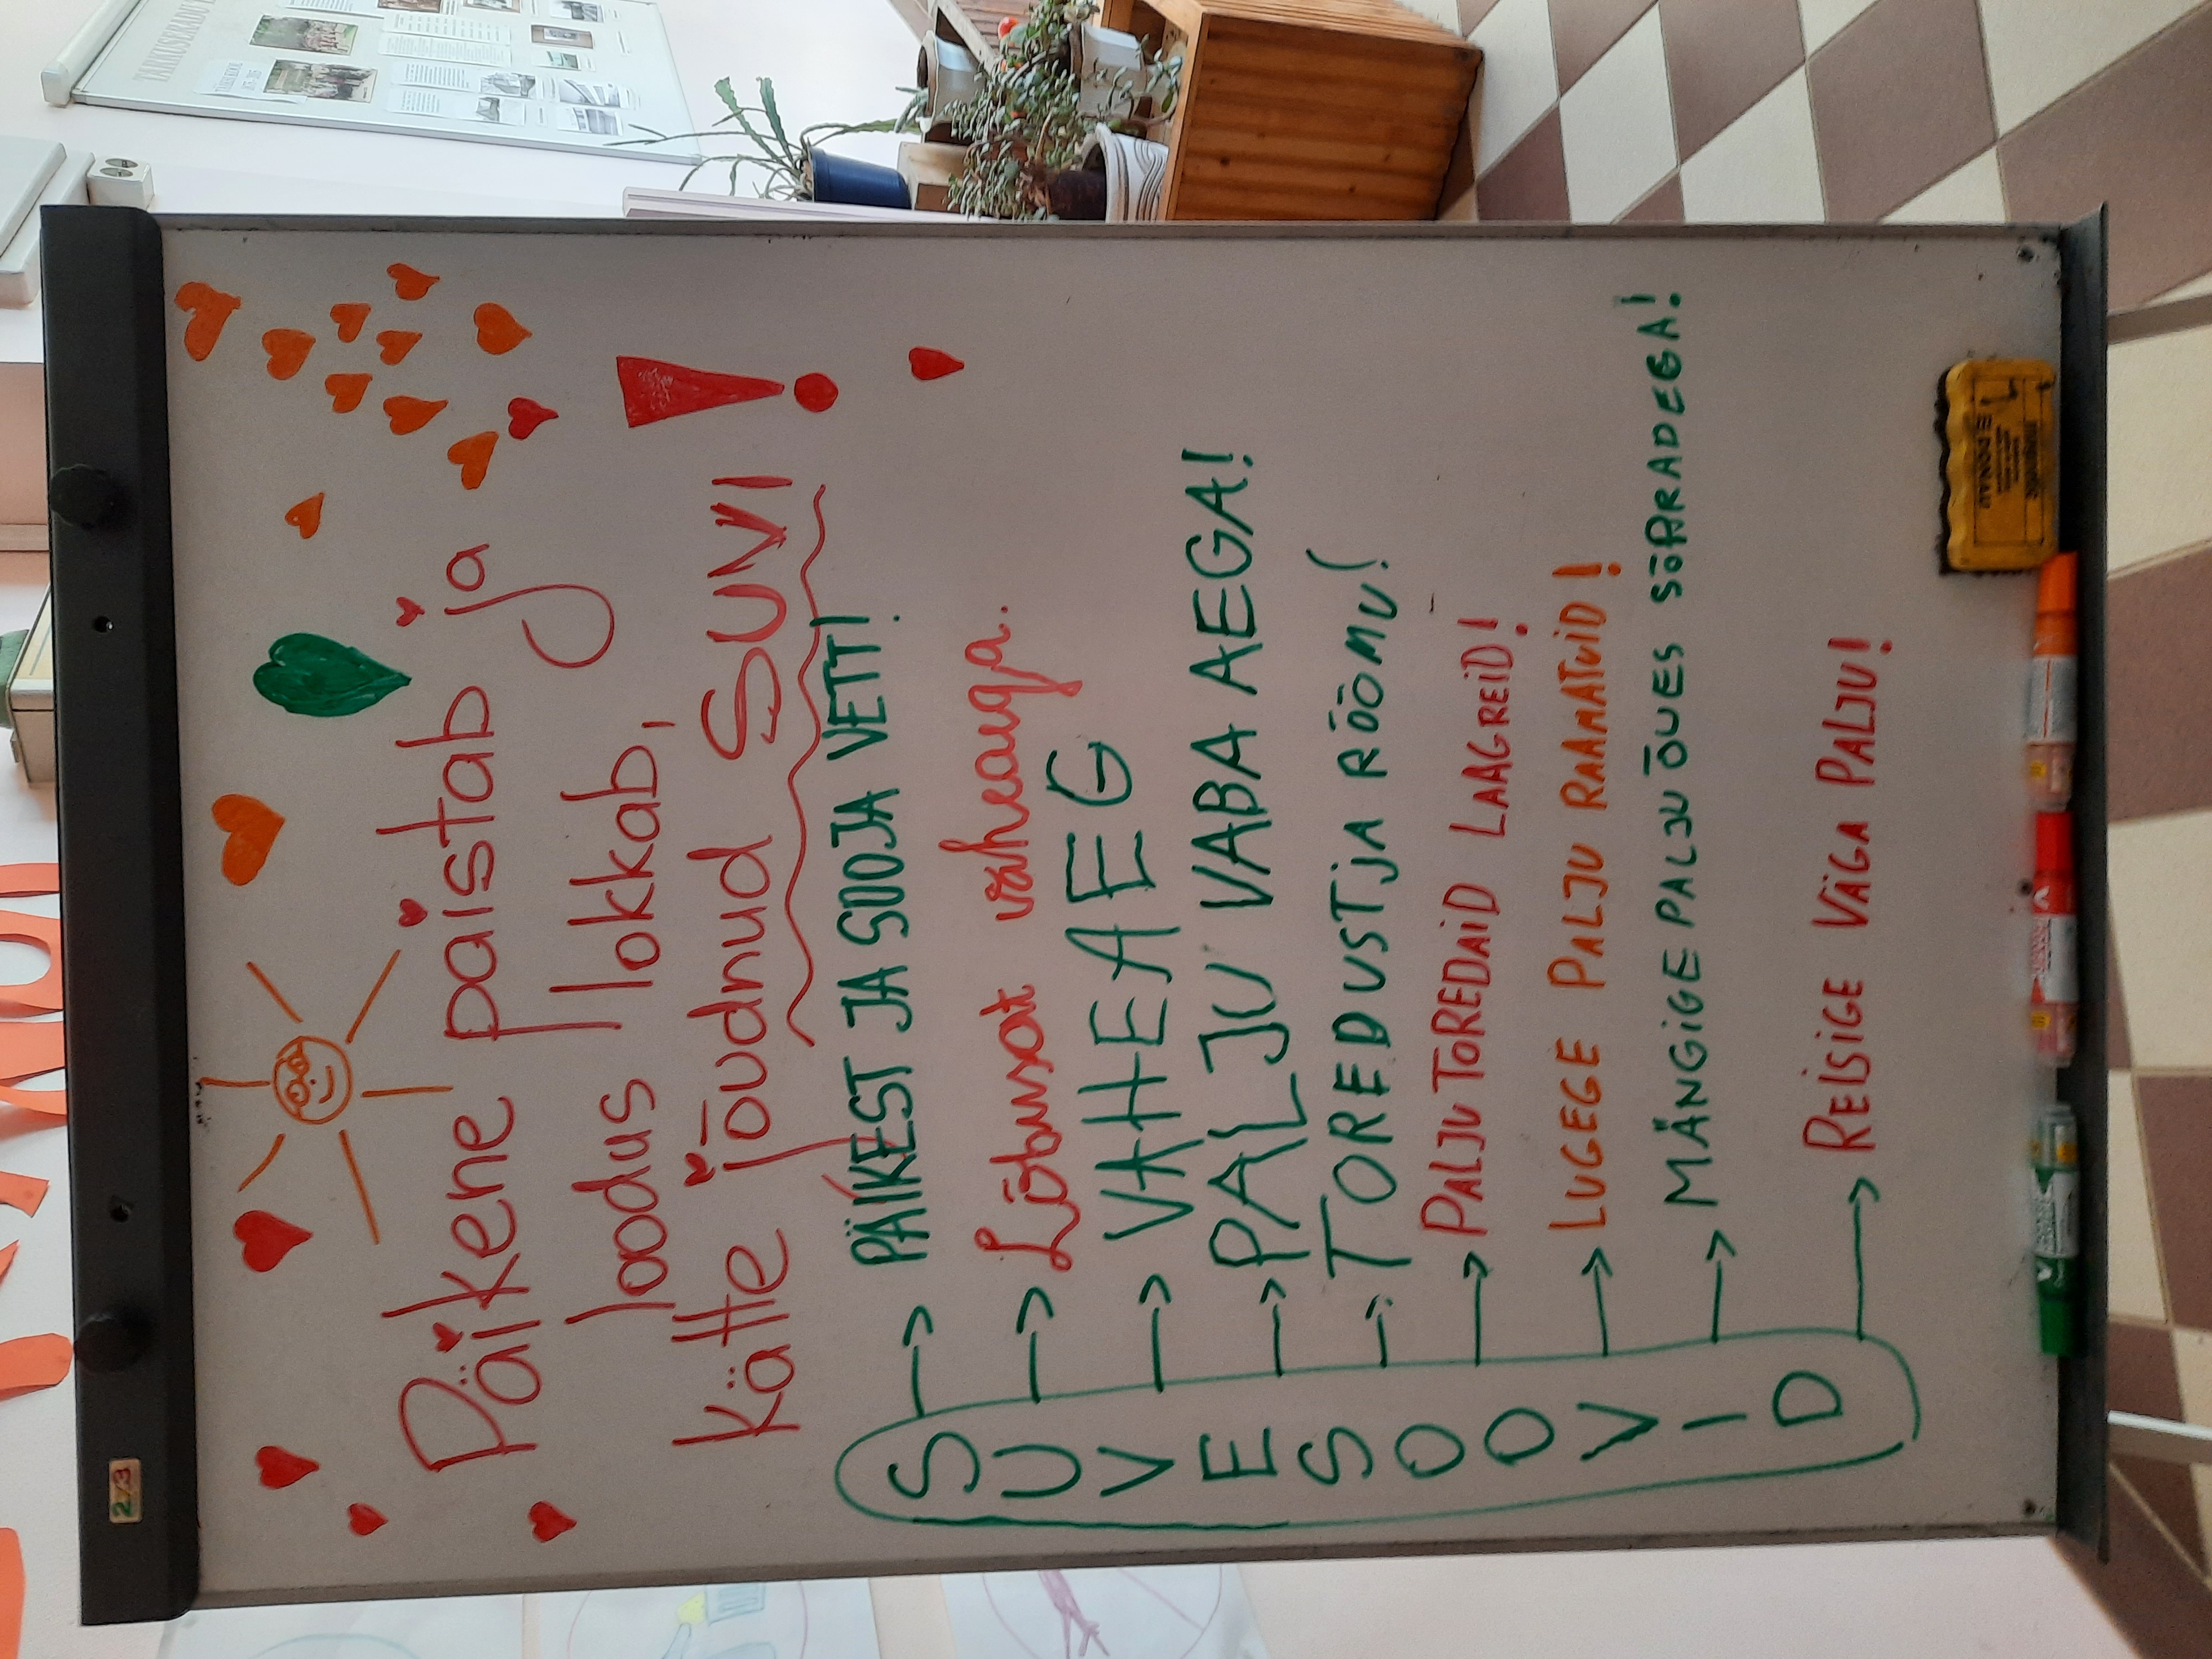 Päikene paistab ja
loodus lokkab,
kätte jõudnud SUVI!
SUVESOOVID
→ PÄIKEST JA SOOJA VETT!
→ Lõbusat vaheaega.
→ VAHEAEG
→ PALJU VABA AEGA!
→ TOREDUST JA RÕÕMU!
→ PALJU TOREDAID LAAGREID!
→ LUGEGE PALJU RAAMATUID!
→ MÄNGIGE PALJU ÕUES SÕPRADEGA!
→ REISIGE VÄGA PALJU!
2/3
EDDING